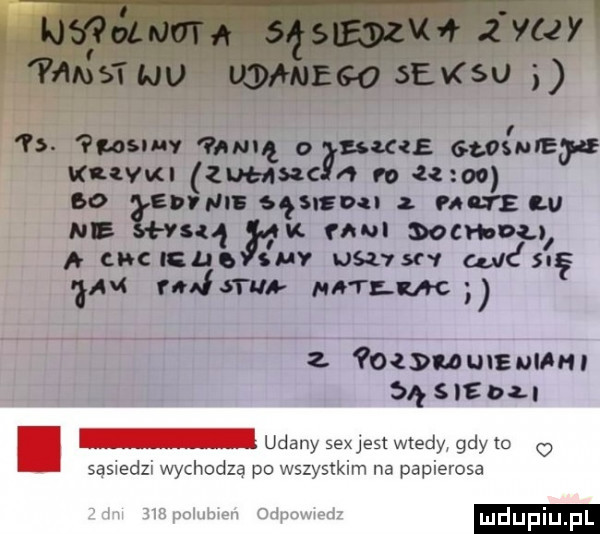 WSPÓLNOTA SĄSIEDZKA ŻYCZY
PAŃSTWU UDANEGO SEKSU ;)
PS. PROSIMY PANIĄ O JESZCZE GŁOŚNIEJSZE
KRZYKI (ZWŁASZCZA PO 22:00)
BO JEDYNIE SĄSIEDZI Z PARTERU
NIE SŁYSZĄ JAK PANI DOCHODZI,
A CHCIELIBYŚMY WSZYSCY CZUĆ SIĘ
JAK PAŃSTWA MATERAC ;)
Z POZDROWIENIAMI
SĄSIEDZI
Udany sex jest wtedy, gdy to
sąsiedzi wychodzą po wszystkim na papierosa
2 dni 318 polubień Odpowiedz
mdupiu.pl